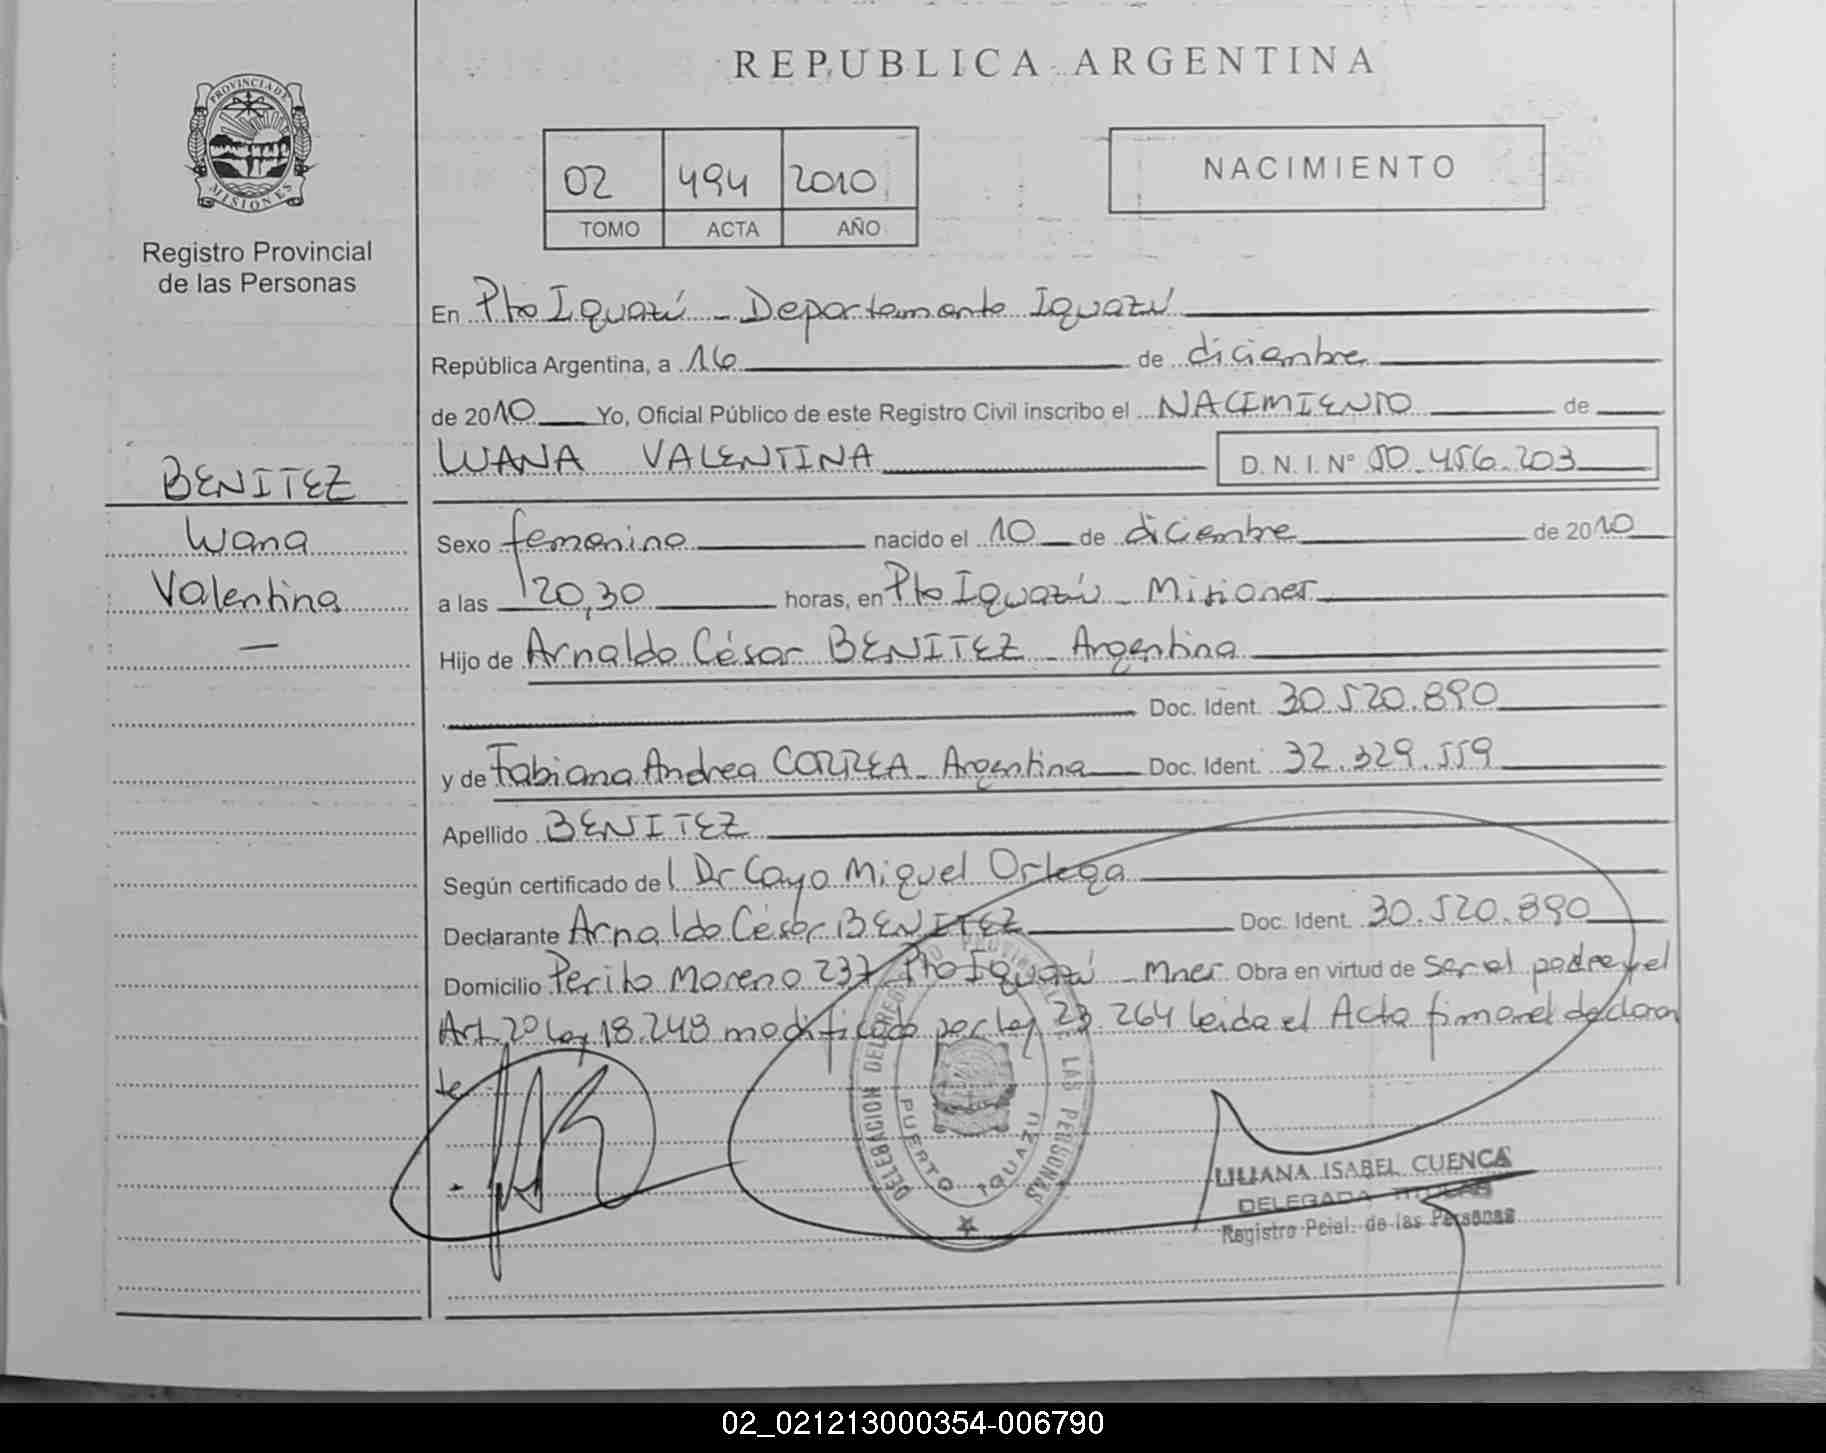 REPUBLICA ARGENTINA
PROVINCIA DE
MISIONES
Registro Provincial
de las Personas
02 494 2010
TOMO ACTA AÑO
NACIMIENTO
En Pto Iguazú - Departamento Iguazú
República Argentina, a 16 de diciembre
de 2010 Yo, Oficial Público de este Registro Civil inscribo el NACIMIENTO de
WANA VALENTINA D. N. I. N° 50.456.203
BENITEZ
Wana
Valentina
—
Sexo femenino nacido el 10 de diciembre de 2010
a las 20,30 horas, en Pto Iguazú - Misiones
Hijo de Arnaldo César BENITEZ - Argentina
Doc. Ident. 30.520.890
y de Fabiana Andrea CORREA - Argentina Doc. Ident. 32.329.559
Apellido BENITEZ
Según certificado del Dr Cayo Miguel Ortega
Declarante Arnaldo César BENITEZ Doc. Ident. 30.520.890
Domicilio Perito Moreno 237 Pto Iguazú - Mnes Obra en virtud de ser el padre y el
Art. 2º Ley 18.248 modificado por Ley 23.264 leida el Acta firma el declaran
te
DELEGACION DEL REGISTRO PROVINCIAL DE LAS PERSONAS
PUERTO IGUAZU
LILIANA ISABEL CUENCA
DELEGADA TITULAR
Registro Pcial. de las Personas
02_021213000354-006790